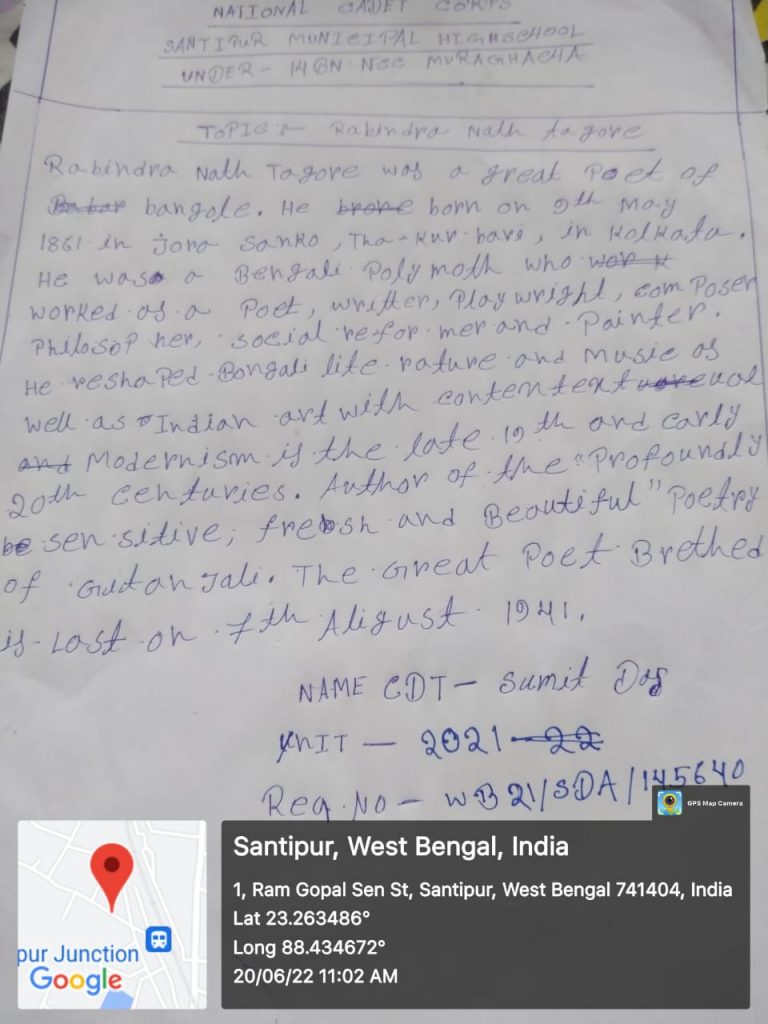 NATIONAL CADET CORPS
SANTIPUR MUNICIPAL HIGHSCHOOL
UNDER - 14BN NCC MURAGHACHA
TOPIC:- Rabindra Nath tagore
Rabindra Nath Tagore was a great Poet of
bangole. He brone born on 9th May
1861 in Joro Sanko, Tha-kur bari, in Kolkata.
He was a Bengali Polymoth who
worked as a Poet, writter, Playwright, composer
Philosop her, social re for mer and Painter.
He reshaped Bongali lite rature and Music as
well as Indian art with contentextual
and Modernism is the late 19th and early
20th centuries. Author of the "Profoundly
sen sitive, fresh and Beautiful" Poetry
of Guitan Jali. The Great Poet Brethed
is Last on 7th Aligust 1941.
NAME CDT - Sumit Das
UNIT - 2021-22
Reg. No - WB21/SDA/145640
GPS Map Camera
Santipur, West Bengal, India
1, Ram Gopal Sen St, Santipur, West Bengal 741404, India
Lat 23.263486°
Long 88.434672°
20/06/22 11:02 AM
pur Junction
Google